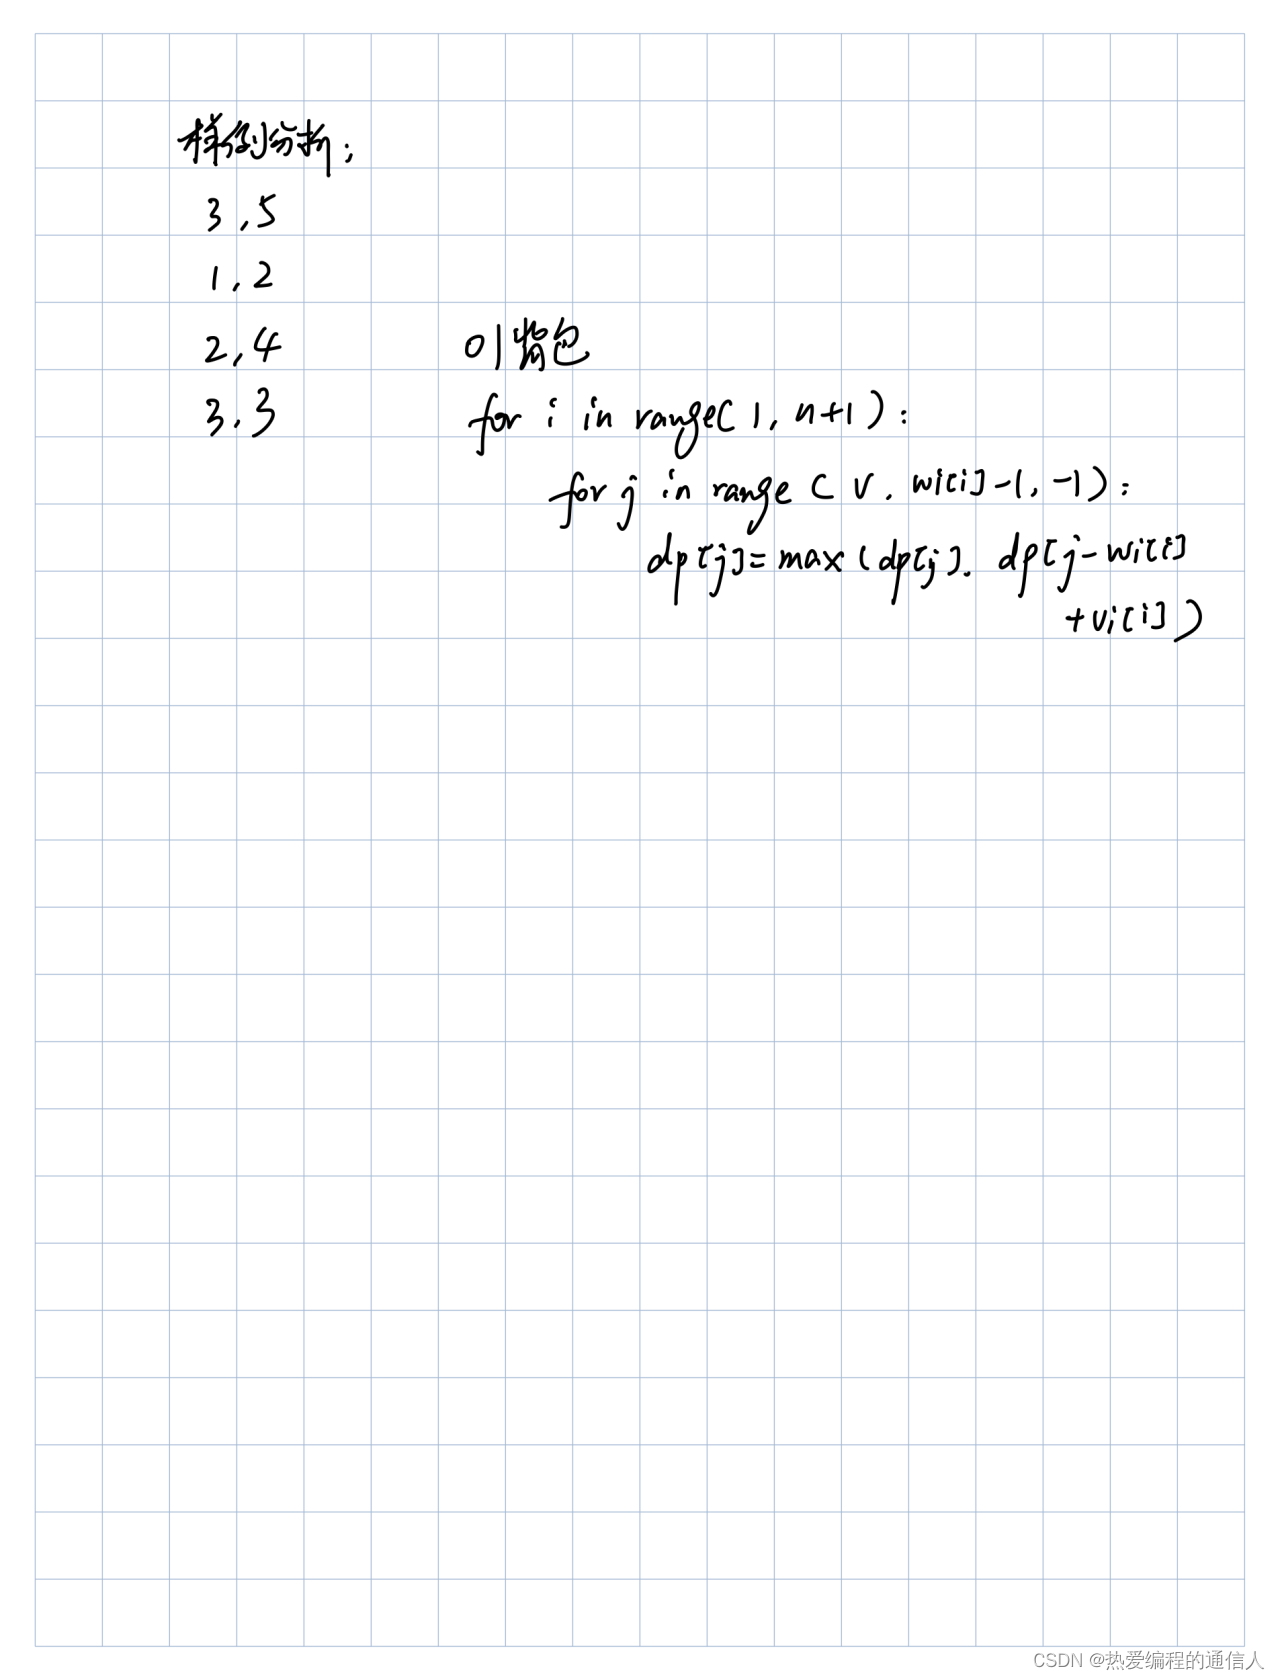 样例分析:
3,5
1,2
2,4
3,3
01背包
for i in range(1, n+1):
for j in range(V, wi[i]-1, -1):
dp[j]=max(dp[j], dp[j-wi[i]
+vi[i])
CSDN @热爱编程的通信人